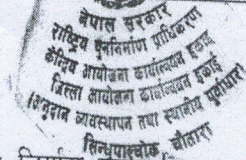 नेपाल सरकार
राष्ट्रिय पुनर्निर्माण प्राधिकरण
केन्द्रिय आयोजना कार्यान्वयन इकाई
जिल्ला आयोजना कार्यान्वयन इकाई
(अनुदान व्यवस्थापन तथा स्थानीय पूर्वाधार)
सिन्धुपाल्चोक, चौतारा